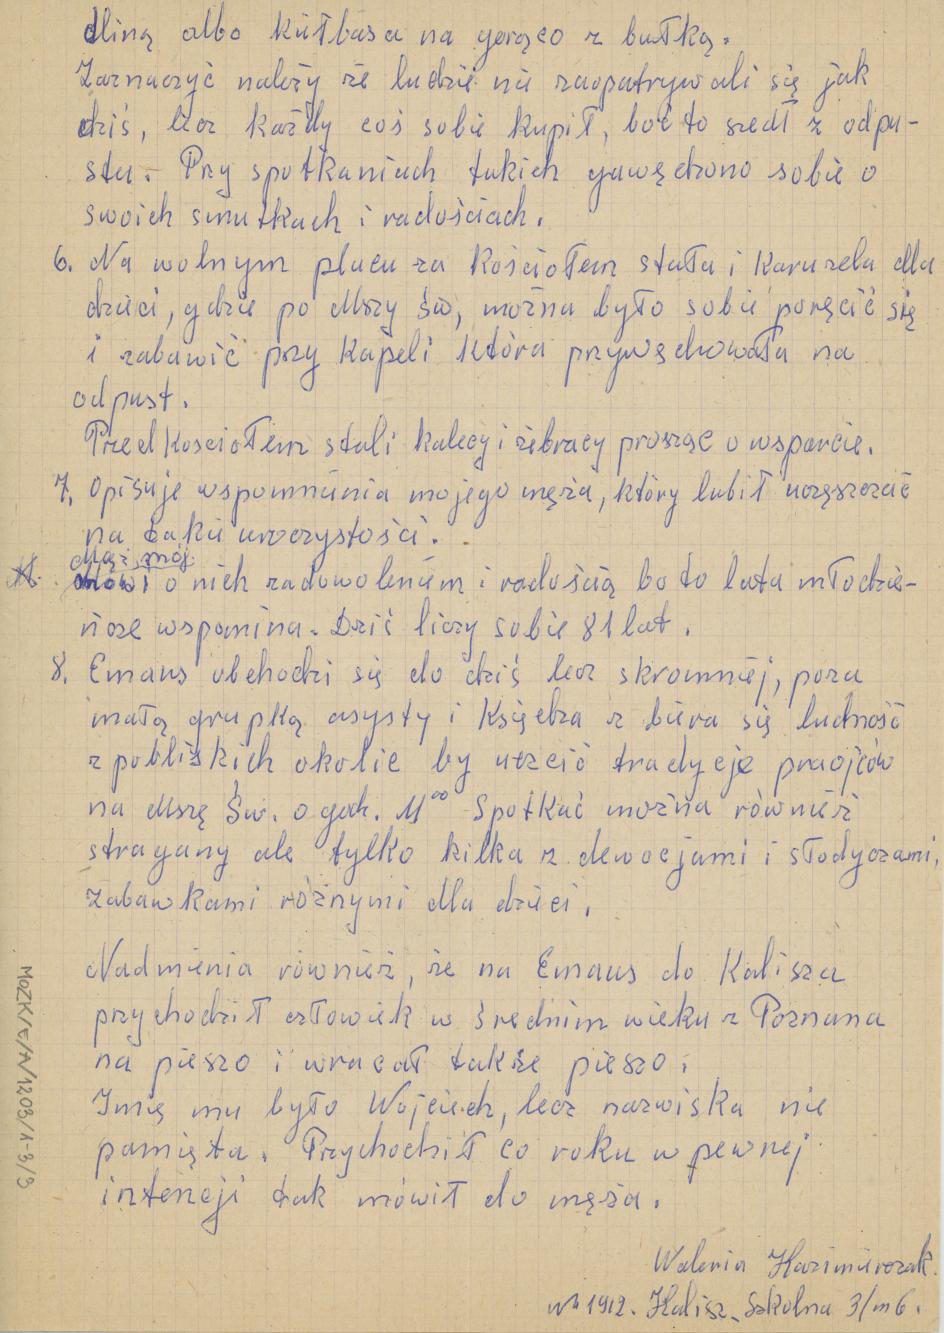 dliną albo kiełbasa na gorąco z bułką.
Zaznaczyć należy że ludzie nie zaopatrywali się jak
dziś, lecz każdy coś sobie kupił, boć to szedł z odpu-
stu. Przy spotkaniach takich gawędzono sobie o
swoich smutkach i radościach.
6. Na wolnym placu za Kościołem stała i Karuzela dla
dzieci, gdzie po Mszy Św, można było sobie poręcić się
i zabawić przy Kapeli która przywędrowała na
odpust.
Przed Kościołem stali kalecy i żebracy prosząc o wsparcie.
7. Opisuje wspomnienia mojego męża, który lubił uczęszczać
na takie uroczystości.
Mąż mój
mówi o nich zadowoleniem i radością bo to lata młodzie-
ńcze wspomina. Dziś liczy sobie 81 lat.
8. Emaus obchodzi się do dziś lecz skromniej, poza
małą grupką asysty i Księdza z biera się ludność
z pobliskich okolic by uczcić tradycje praojców
na Mszę Św. o godz. 11⁰⁰ Spotkać można również
stragany ale tylko kilka z dewocjami i słodyczami,
zabawkami różnymi dla dzieci.
Nadmienia również, że na Emaus do Kalisza
przychodził człowiek w średnim wieku z Poznana
na pieszo i wracał także pieszo.
Imię mu było Wojciech, lecz nazwiska nie
pamięta. Przychodził co roku w pewnej
intencji tak mówił do męża.
Waleria Kazimierczak.
ur 1912. Kalisz, Szkolna 3/m 6.
MOZK/E/A/1203/1-3/3